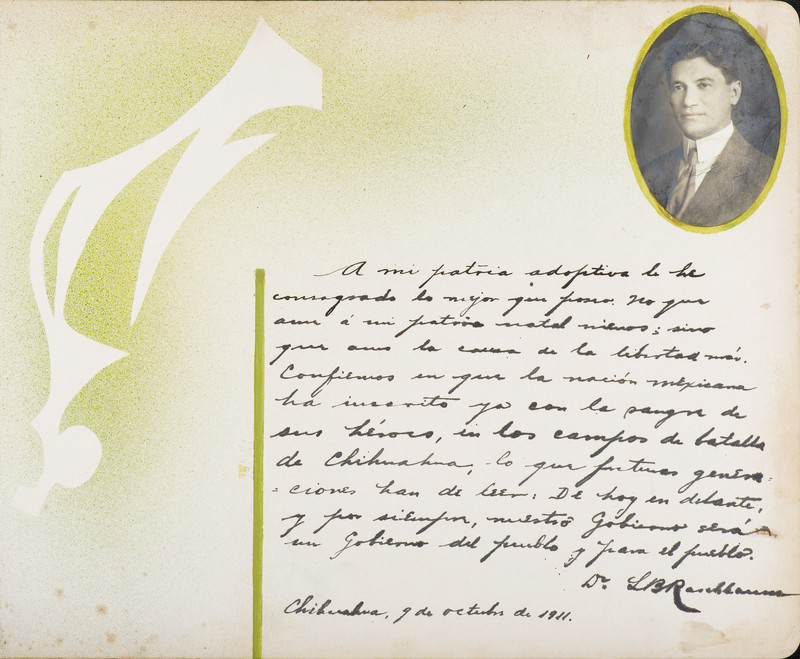 A mi patria adoptiva le he
consagrado lo mejor que poseo. No que
ame á mi patria natal menos; sino
que amo la causa de la libertad más.
Confiemos en que la nación mexicana
ha inscrito ya con la sangre de
sus héroes, en los campos de batalla
de Chihuahua, lo que futuras genera=
=ciones han de leer: De hoy en delante,
y por siempre, nuestro Gobierno será
un Gobierno del pueblo y para el pueblo.
Dr. L B Raschbaum
Chihuahua, 9 de octubre de 1911.